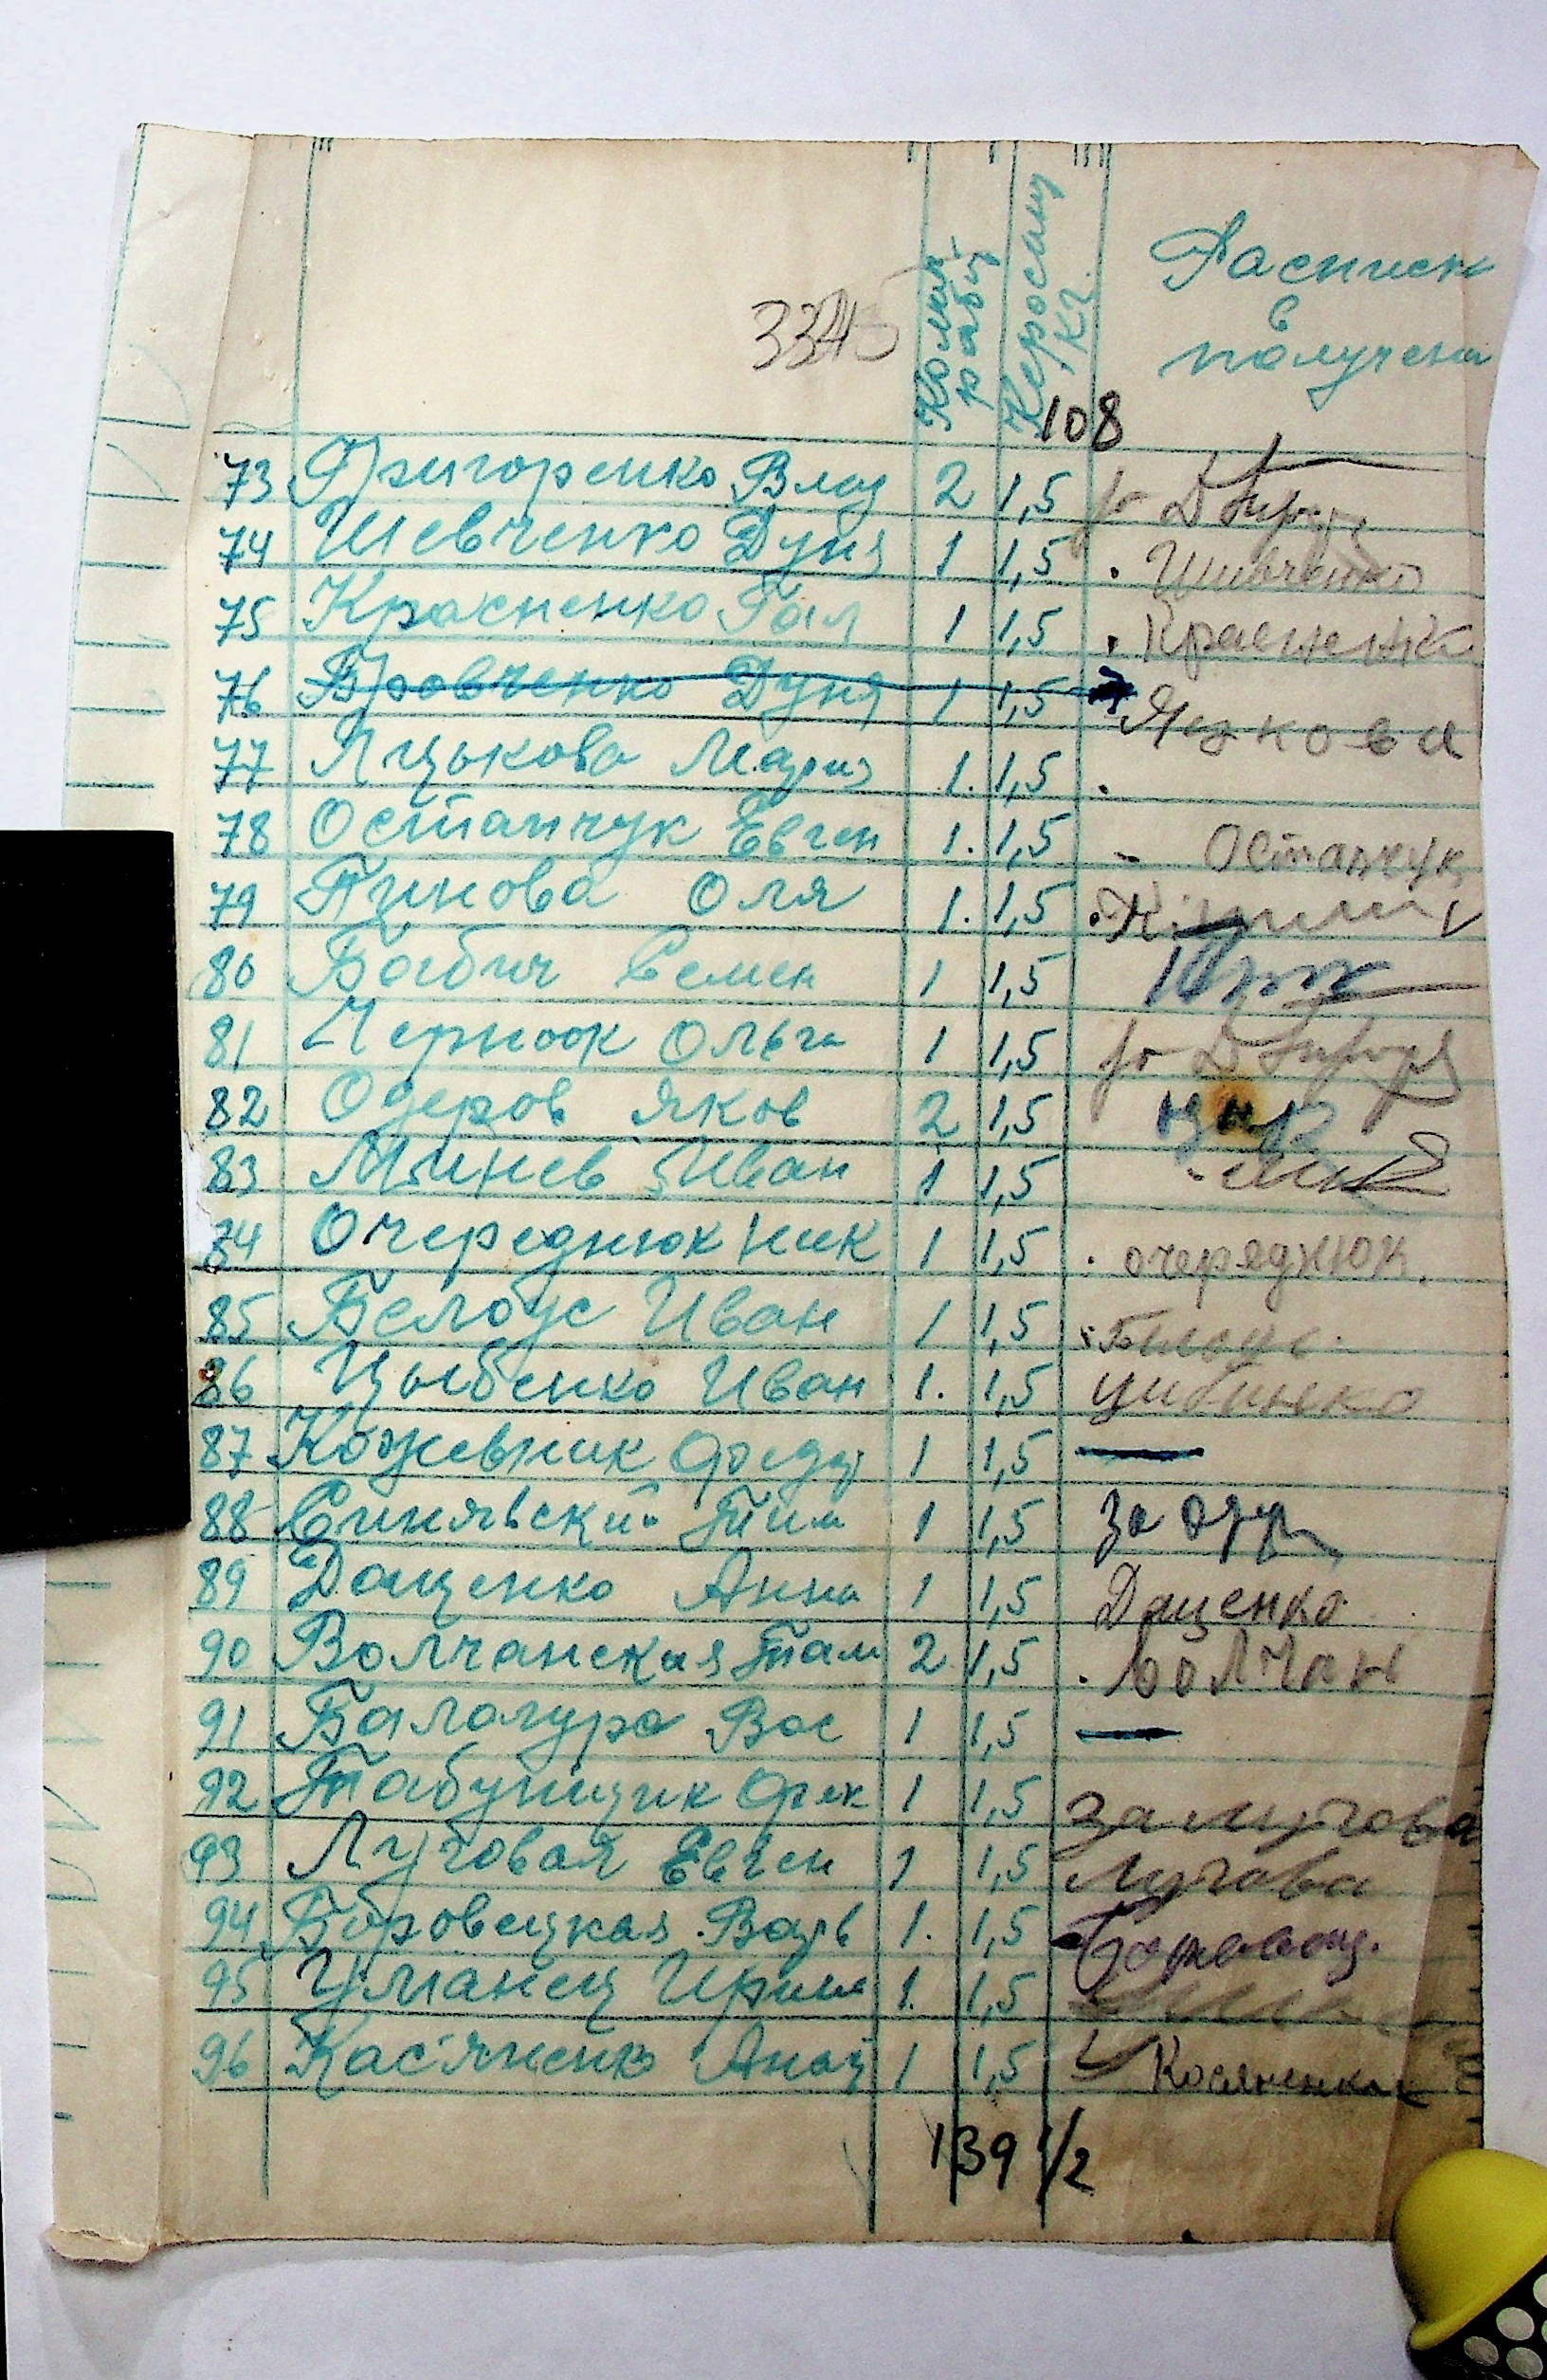 Колич. рабоч
Керосину кг.
Расписк
в
получени
108
73 Григоренко Влад 2 1,5
74 Шевченко Дуня 1 1,5 Шивченко
75 Красненко Гал 1 1,5 Красненко
76 Бровченко Дуня 1 1,5
77 Яцькова Мария 1. 1,5 Яцкова
78 Остапчук Евген 1. 1,5 Остапчук
79 Пинова Оля 1. 1,5
80 Бабич Семен 1 1,5
81 Чернюк Ольга 1 1,5
82 Одеров Яков 2 1,5
83 Минев Иван 1 1,5
84 Очереднюк Ник 1 1,5 очеряднюк
85 Белоус Иван 1 1,5 Билоус
86 Цыбенко Иван 1. 1,5 Цибинько
87 Кожевник Федор 1 1,5 —
88 Синявский Тим 1 1,5 за
89 Даценко Анна 1 1,5 Даценко
90 Волчанская Там 2 1,5 Волчан
91 Балагура Вас 1 1,5 —
92 Табунщик Фек 1 1,5 за Лугова
93 Луговая Евген 1 1,5 Лугова
94 Боровецкая Варв 1. 1,5 Боровец.
95 Уманец Ирина 1. 1,5
96 Кас'яненко Анац 1 1,5 Косяненко
139 1/2